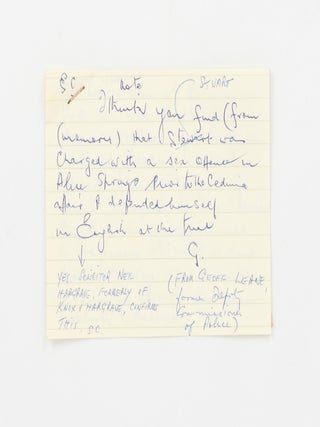 SC note STUART
I think you find (from
(memory) that Stewart was
Charged with a sex offence in
Alice Springs prior to the Ceduna
affair & defended himself
in English at the trial
G.
YES SOLICITOR NEIL
HARGRAVE, FORMERLY OF
KNOX & HARGRAVE, CONFIRMS
THIS. SC.
(FROM GEOFF LEANE,
former Deputy
Commissioner
of Police)